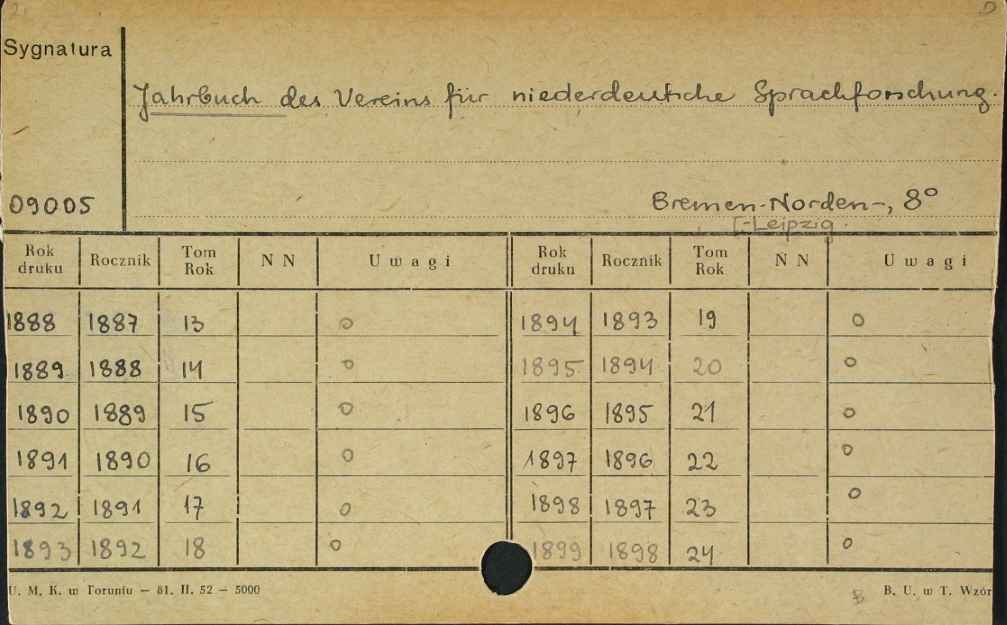 2.
D
Sygnatura
Jahrbuch des Vereins für niederdeutsche Sprachforschung.
09005
Bremen-Norden-, 8°
[-Leipzig.
Rok druku Rocznik Tom Rok N N Uwagi Rok druku Rocznik Tom Rok N N Uwagi
1888 1887 13 o 1894 1893 19 o
1889 1888 14 o 1895 1894 20 o
1890 1889 15 o 1896 1895 21 o
1891 1890 16 o 1897 1896 22 o
1892 1891 17 o 1898 1897 23 o
1893 1892 18 o 1899 1898 24 o
U. M. K. w Toruniu — 81. II. 52 — 5000
B. U. w T. Wzór